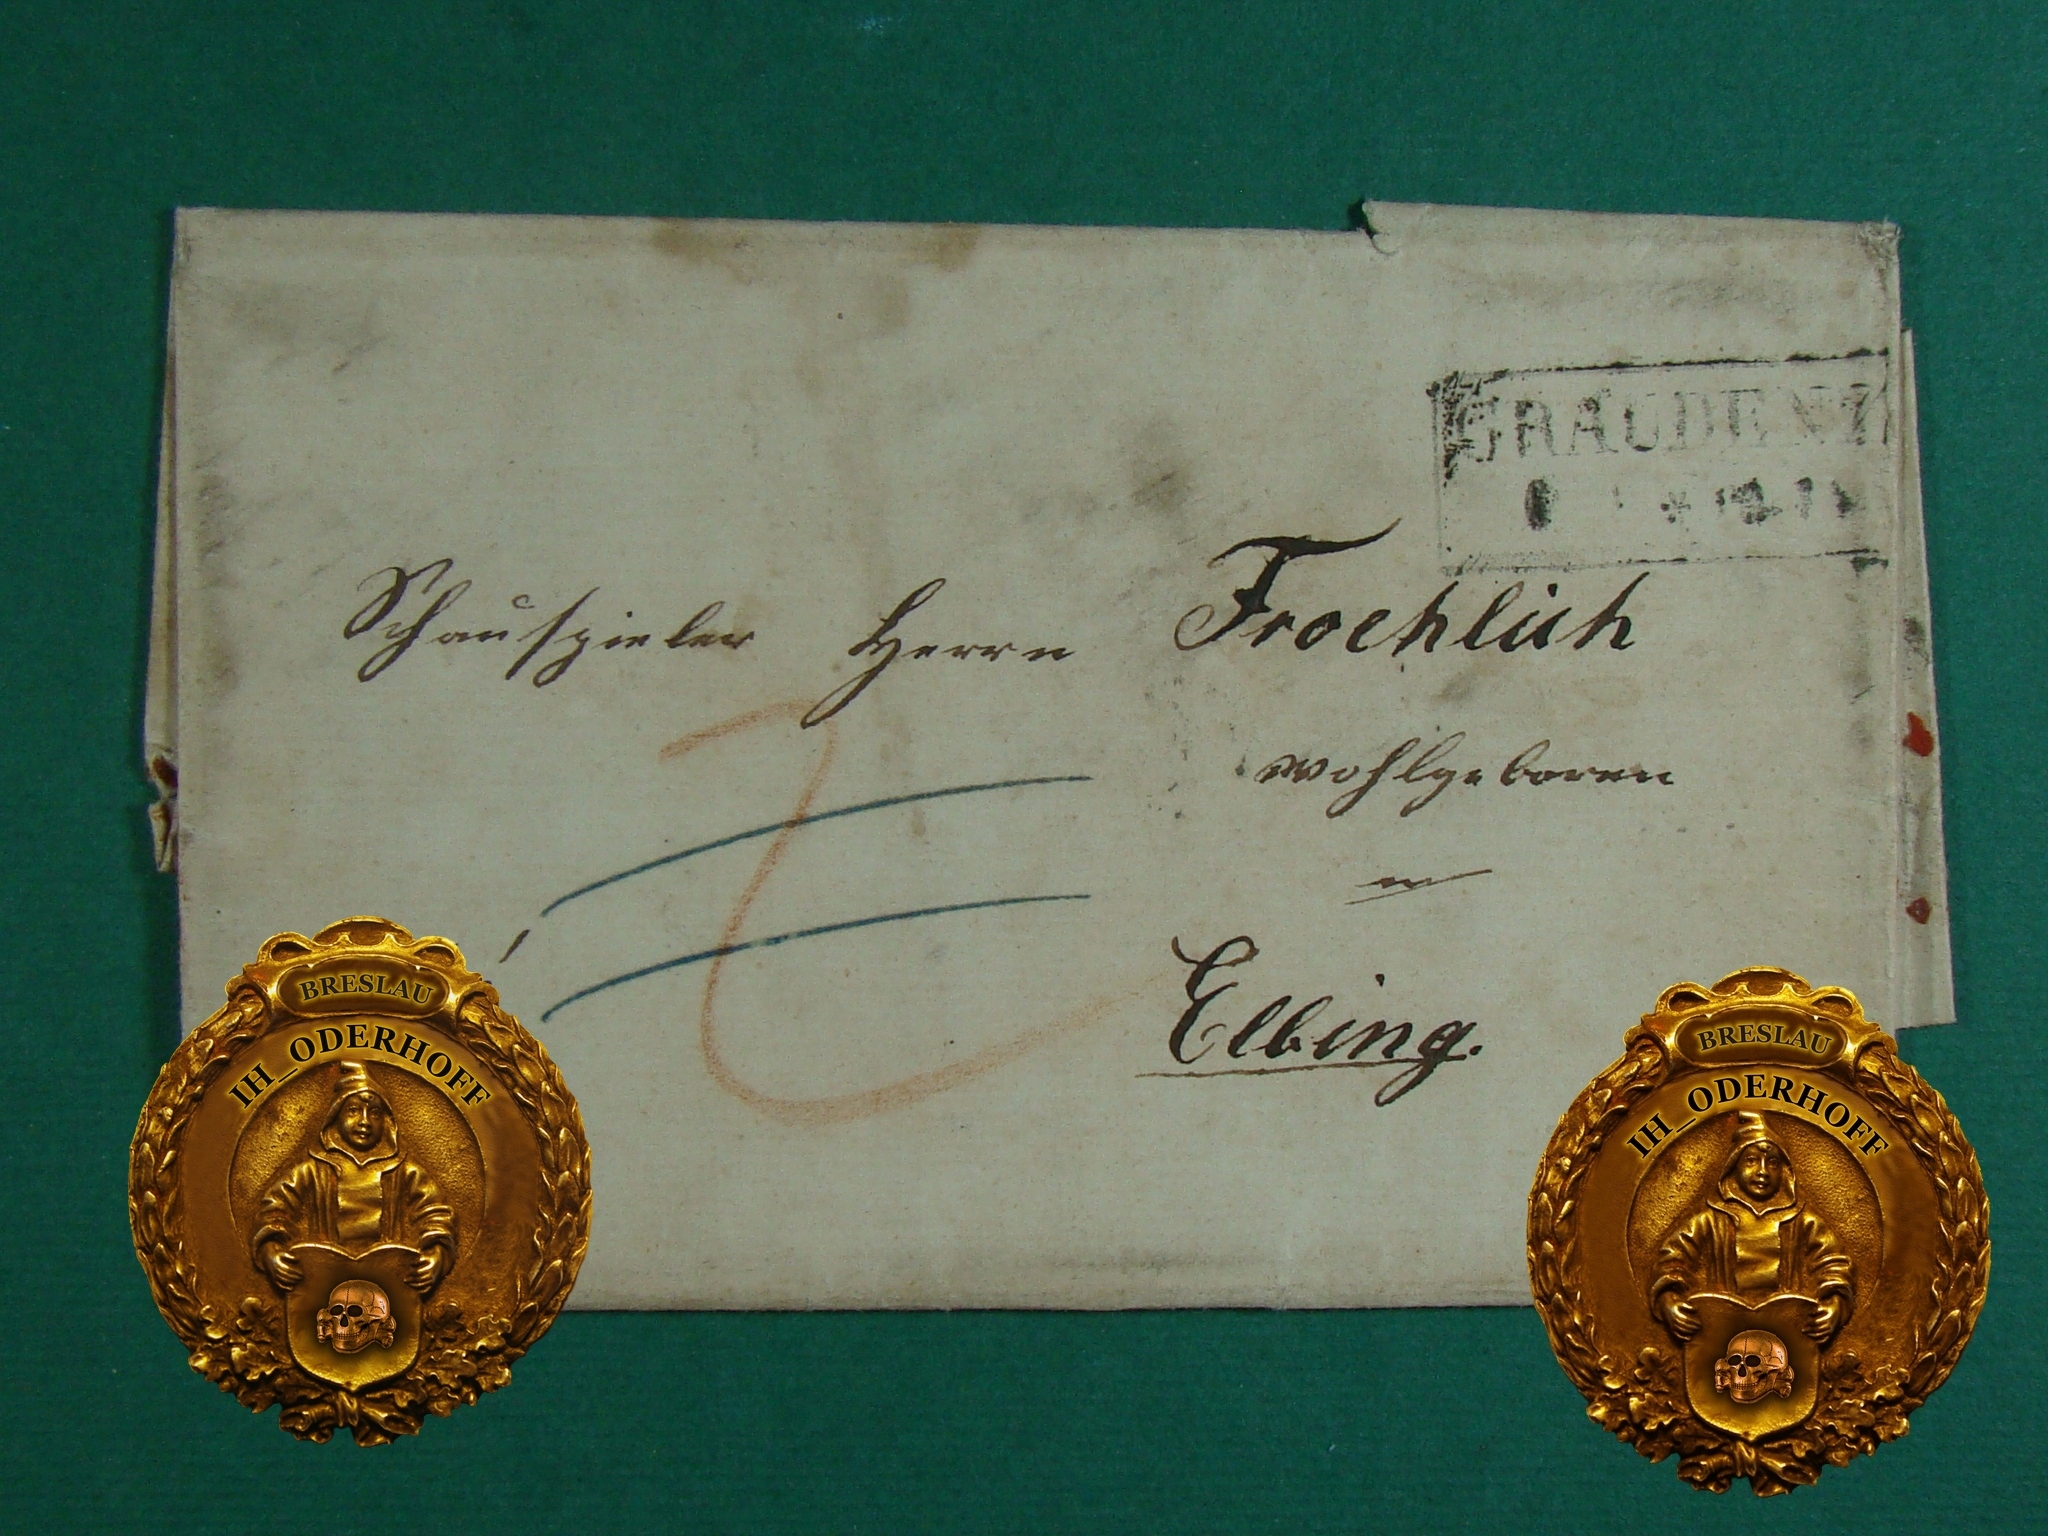 GRAUDENZ
Schauspieler Herrn Froehlich
wohlgeboren
in
Elbing.
BRESLAU
IH_ODERHOFF
BRESLAU
IH_ODERHOFF